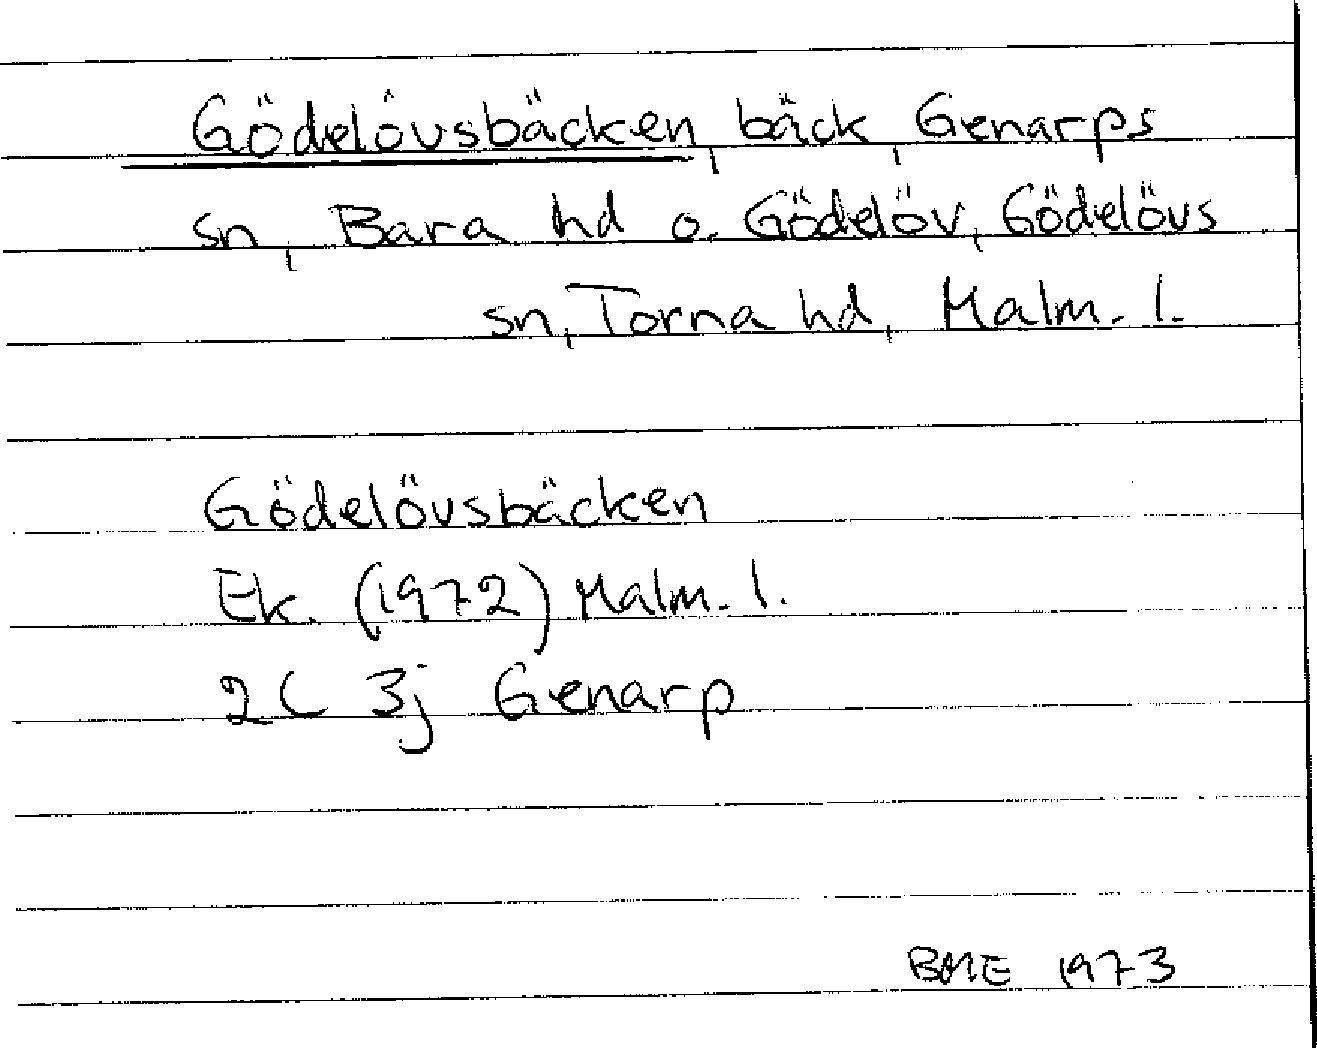 Gödelövsbäcken, bäck, Genarps
sn, Bara hd o. Gödelöv, Gödelövs
sn, Torna hd, Malm. l.
Gödelövsbäcken
Ek. (1972) Malm. l.
2C 3j Genarp
BME 1973